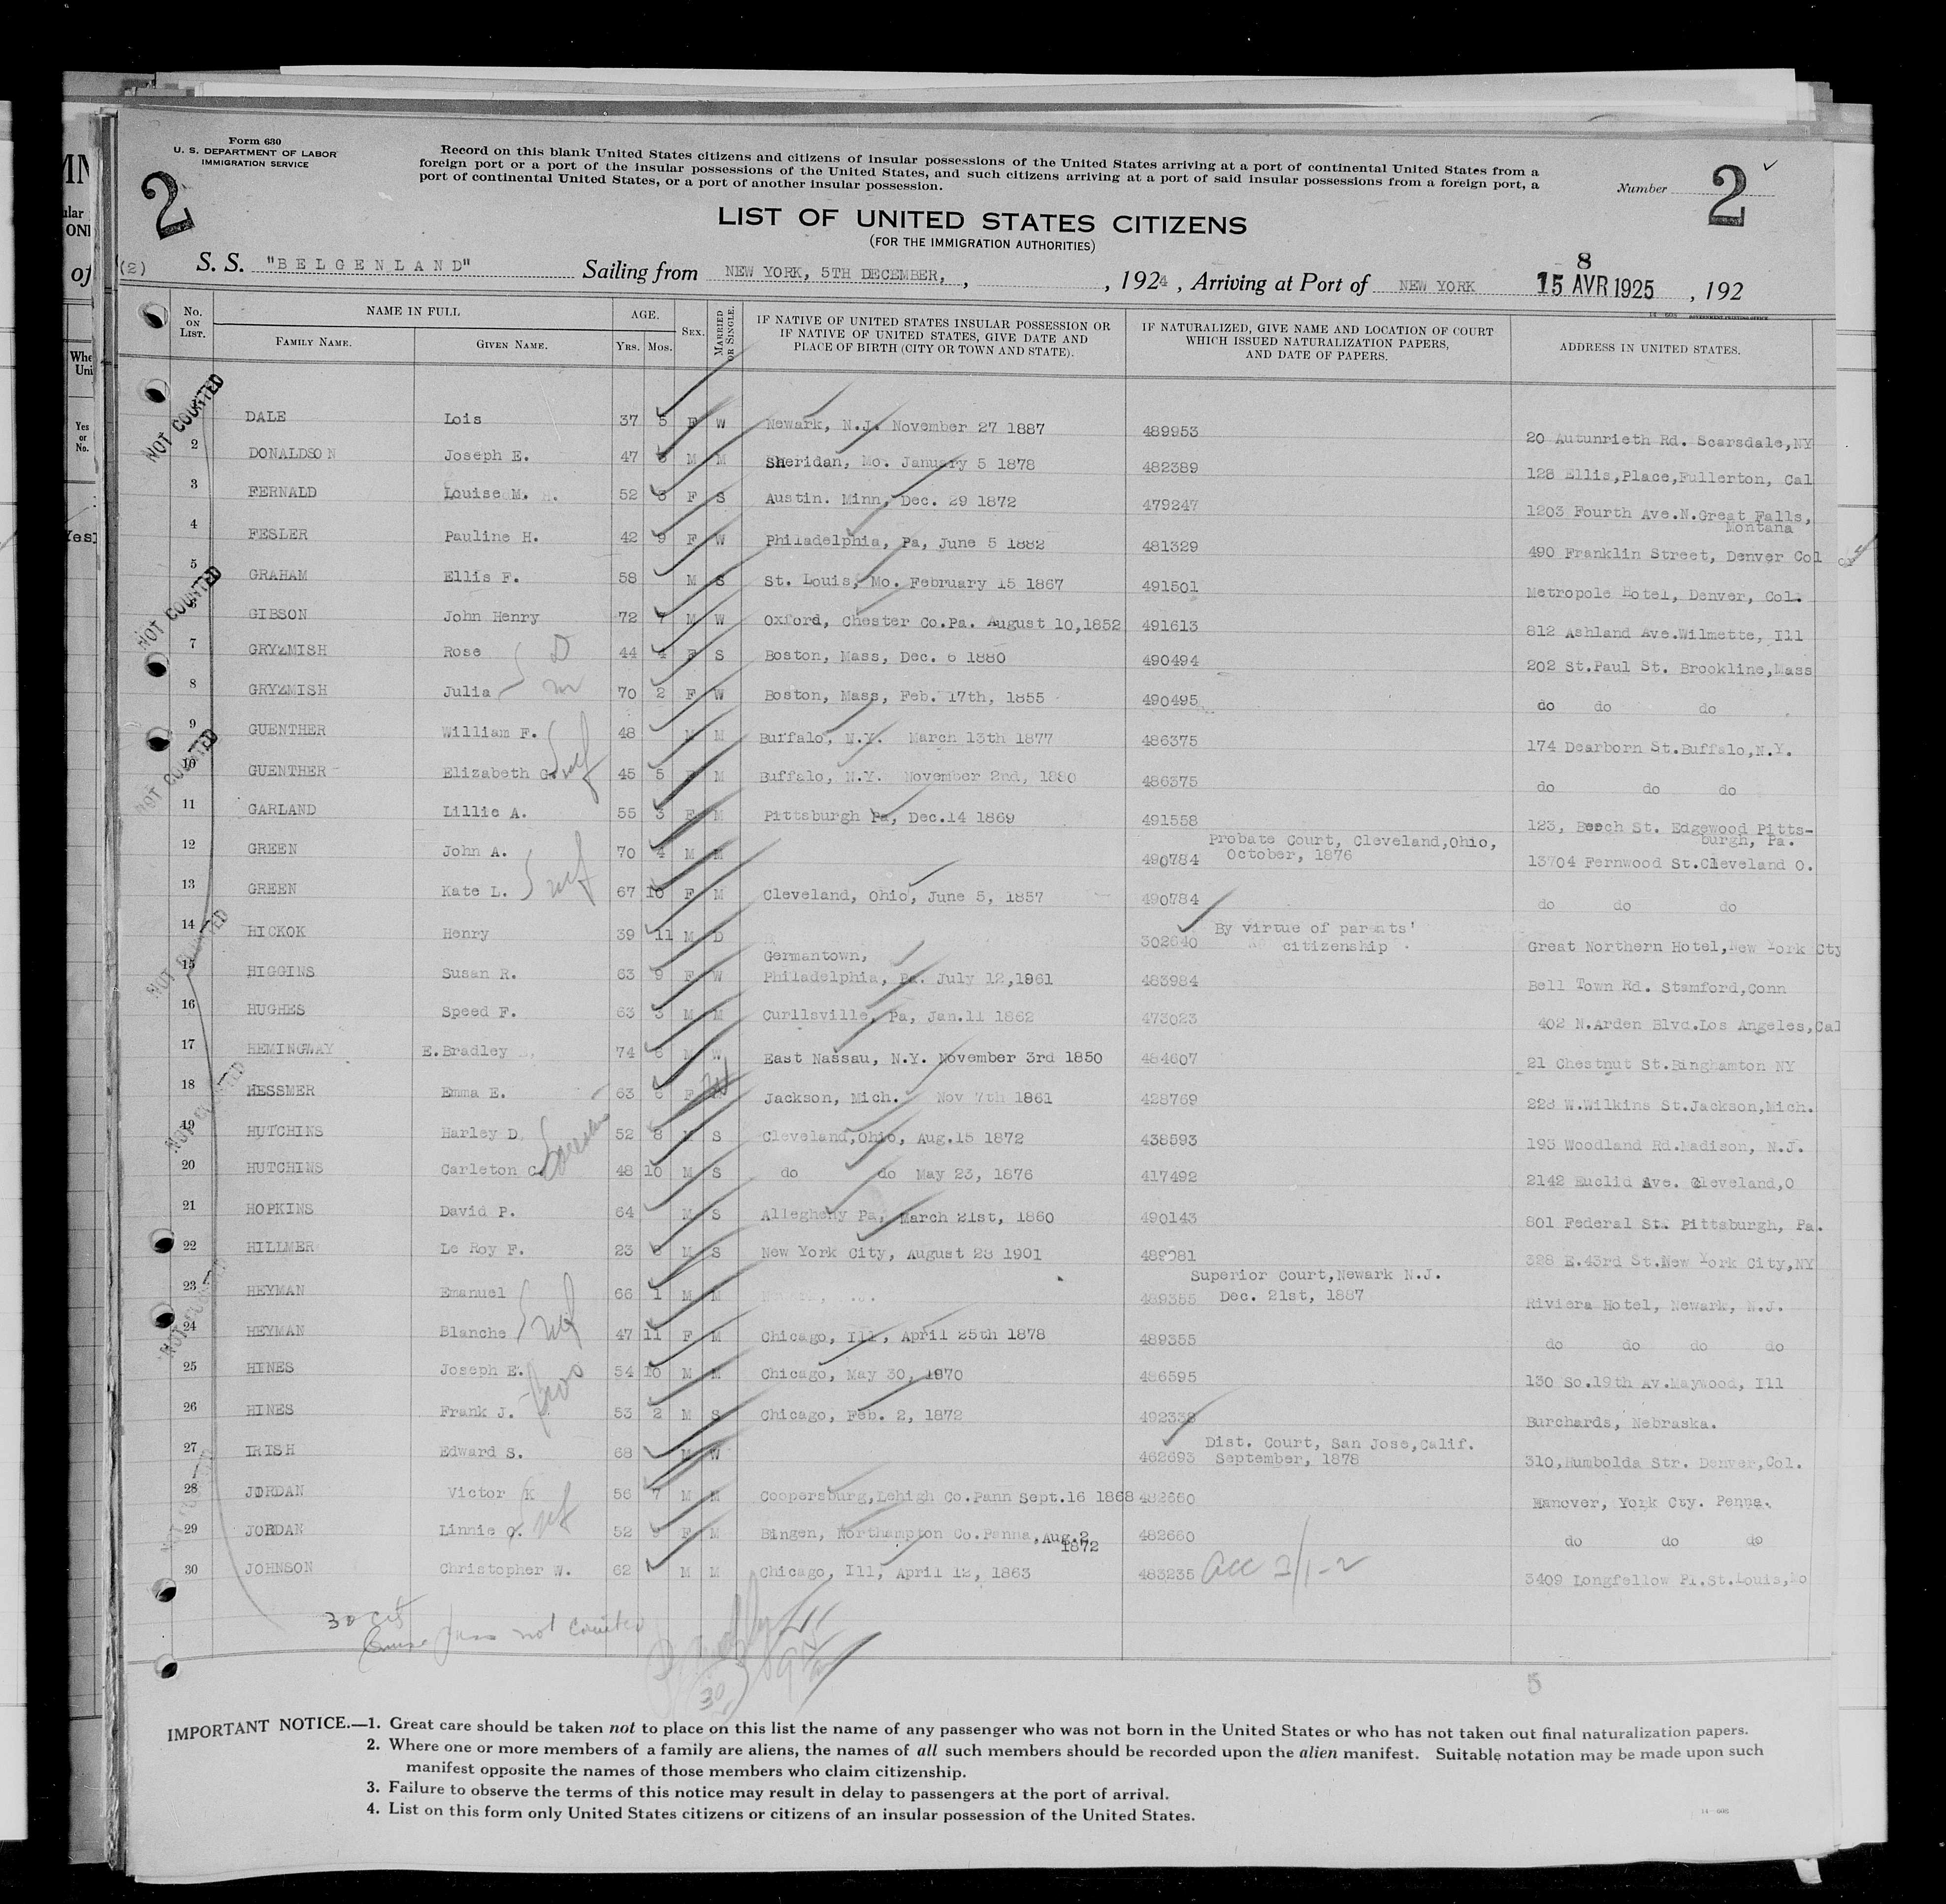 Form 630
U. S. DEPARTMENT OF LABOR
IMMIGRATION SERVICE
2
Record on this blank United States citizens and citizens of insular possessions of the United States arriving at a port of continental United States from a
foreign port or a port of the insular possessions of the United States, and such citizens arriving at a port of said insular possessions from a foreign port, a
port of continental United States, or a port of another insular possession.
Number 2
LIST OF UNITED STATES CITIZENS
(FOR THE IMMIGRATION AUTHORITIES)
(2) S. S. "BELGENLAND" Sailing from NEW YORK, 5TH DECEMBER, , 1924 , Arriving at Port of NEW YORK 8 15 AVR 1925 , 192
No. ON LIST. NAME IN FULL FAMILY NAME. GIVEN NAME. AGE. YRS. MOS. SEX. MARRIED OR SINGLE. IF NATIVE OF UNITED STATES INSULAR POSSESSION OR IF NATIVE OF UNITED STATES, GIVE DATE AND PLACE OF BIRTH (CITY OR TOWN AND STATE). IF NATURALIZED, GIVE NAME AND LOCATION OF COURT WHICH ISSUED NATURALIZATION PAPERS, AND DATE OF PAPERS. ADDRESS IN UNITED STATES.
DALE Lois 37 5 F W Newark, N.J. November 27 1887 489953 20 Autunrieth Rd. Scarsdale,NY
2 DONALDSON Joseph E. 47 M M Sheridan, Mo. January 5 1878 482389 128 Ellis,Place,Fullerton, Cal
3 FERNALD Louise M. 52 F S Austin. Minn, Dec. 29 1872 479247 1203 Fourth Ave.N.Great Falls, Montana
4 FESLER Pauline H. 42 9 F W Philadelphia, Pa, June 5 1882 481329 490 Franklin Street, Denver Col
5 GRAHAM Ellis F. 58 M S St. Louis, Mo. February 15 1867 491501 Metropole Hotel, Denver, Col.
GIBSON John Henry 72 7 M W Oxford, Chester Co.Pa. August 10,1852 491613 812 Ashland Ave.Wilmette, Ill
7 GRYZMISH Rose 44 4 F S Boston, Mass, Dec. 6 1880 490494 202 St.Paul St. Brookline,Mass
8 GRYZMISH Julia 70 2 F W Boston, Mass, Feb. 17th, 1855 490495 do do do
9 GUENTHER William F. 48 M M Buffalo, N.Y. March 13th 1877 486375 174 Dearborn St.Buffalo,N.Y.
10 GUENTHER Elizabeth G. 45 5 F M Buffalo, N.Y. November 2nd, 1880 486375 do do do
11 GARLAND Lillie A. 55 3 F M Pittsburgh Pa, Dec.14 1869 491558 123, Beech St. Edgewood Pitts-burgh, Pa.
12 GREEN John A. 70 4 M M 490784 Probate Court, Cleveland,Ohio, October, 1876 13704 Fernwood St.Cleveland O.
13 GREEN Kate L. 67 10 F M Cleveland, Ohio, June 5, 1857 490784 do do do
14 HICKOK Henry 39 11 M D 302640 By virtue of parents' citizenship . Great Northern Hotel,New York Cty
15 HIGGINS Susan R. 63 9 F W Germantown, Philadelphia, Pa. July 12,1861 483984 Bell Town Rd. Stamford,Conn
16 HUGHES Speed F. 63 3 M M Curllsville, Pa, Jan.11 1862 473023 402 N.Arden Blvd.Los Angeles,Cal
17 HEMINGWAY E.Bradley 74 6 M W East Nassau, N.Y. November 3rd 1850 484607 21 Chestnut St.Binghamton NY
18 HESSMER Emma E. 63 6 F W Jackson, Mich. Nov 7th 1861 428769 228 W.Wilkins St.Jackson,Mich.
19 HUTCHINS Harley D. 52 8 M S Cleveland,Ohio, Aug.15 1872 438593 193 Woodland Rd.Madison, N.J.
20 HUTCHINS Carleton C. 48 10 M S do do May 23, 1876 417492 2142 Euclid Ave. Cleveland,O
21 HOPKINS David P. 64 M S Allegheny Pa, March 21st, 1860 490143 801 Federal St. Pittsburgh, Pa.
22 HILLMER Le Roy F. 23 M S New York City, August 28 1901 489081 328 E.43rd St.New York City,NY
23 HEYMAN Emanuel 66 1 M M 489355 Superior Court,Newark N.J. Dec. 21st, 1887 Riviera Hotel, Newark, N.J.
24 HEYMAN Blanche 47 11 F M Chicago, Ill, April 25th 1878 489355 do do do do
25 HINES Joseph E. 54 10 M M Chicago, May 30, 1870 486595 130 So.19th Av.Maywood, Ill
26 HINES Frank J. 53 2 M S Chicago, Feb. 2, 1872 492338 Burchards, Nebraska.
27 IRISH Edward S. 68 M W 462693 Dist. Court, San Jose,Calif. September, 1878 310,Humbolda Str. Denver,Col.
28 JORDAN Victor K 56 7 M M Coopersburg,Lehigh Co.Pann Sept.16 1868 482660 Hanover, York Cty. Penna.
29 JORDAN Linnie 52 F M Bingen, Northampton Co.Panna,Aug.2 1872 482660 do do do
30 JOHNSON Christopher W. 62 M M Chicago, Ill, April 12, 1863 483235 3409 Longfellow Pl.St.Louis,Mo
NOT COUNTED
NOT COUNTED
NOT COUNTED
NOT COUNTED
NOT COUNTED
30 cit
not counted
30
5
IMPORTANT NOTICE.—1. Great care should be taken not to place on this list the name of any passenger who was not born in the United States or who has not taken out final naturalization papers.
2. Where one or more members of a family are aliens, the names of all such members should be recorded upon the alien manifest. Suitable notation may be made upon such
manifest opposite the names of those members who claim citizenship.
3. Failure to observe the terms of this notice may result in delay to passengers at the port of arrival.
4. List on this form only United States citizens or citizens of an insular possession of the United States.